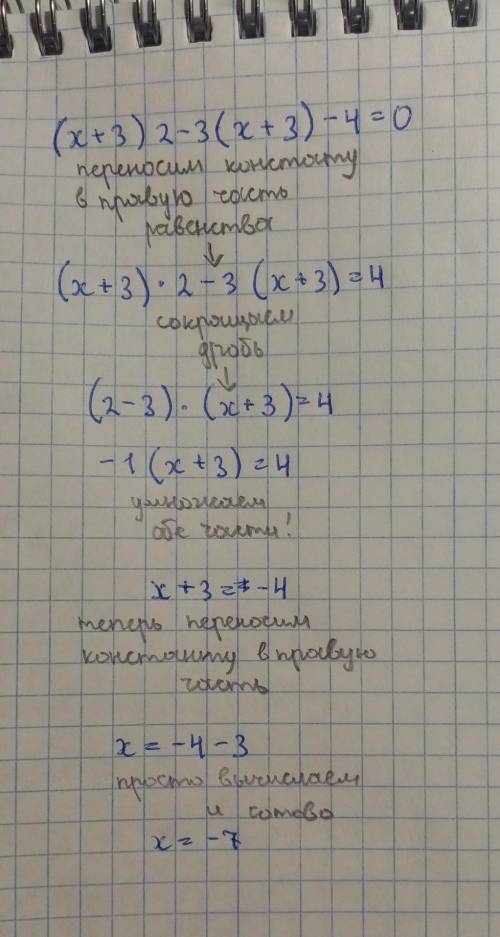 (x+3) 2-3(x+3)-4=0
переносим константу
в правую часть
равенства
(x+3)·2-3 (x+3)=4
сокращаем
дробь
(2-3)·(x+3)=4
-1(x+3)=4
умножаем
обе части!
x+3=-4
теперь переносим
константу в правую
часть
x=-4-3
просто вычисляем
и готово
x=-7